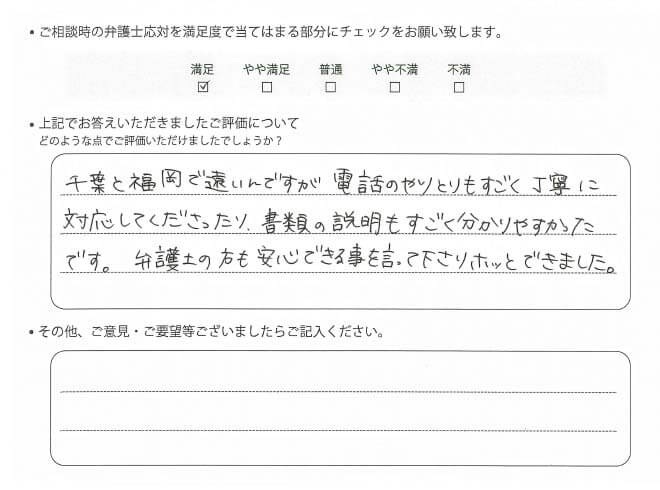 • ご相談時の弁護士応対を満足度で当てはまる部分にチェックをお願い致します。
満足 やや満足 普通 やや不満 不満
☑ ☐ ☐ ☐ ☐
• 上記でお答えいただきましたご評価について
どのような点でご評価いただけましたでしょうか？
千葉と福岡で遠いんですが 電話のやりとりもすごく丁寧に
対応してくださったり、書類の説明もすごく分かりやすかった
です。 弁護士の方も安心できる事を言って下さりホッとできました。
• その他、ご意見・ご要望等ございましたらご記入ください。